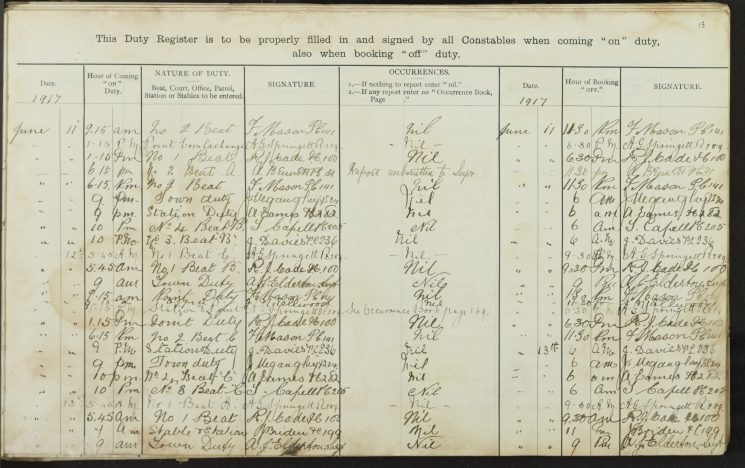 13
This Duty Register is to be properly filled in and signed by all Constables when coming "on" duty,
also when booking "off" duty.
Date. Hour of Coming "ON" Duty. NATURE OF DUTY. Beat, Court, Office, Patrol, Station or Stables to be entered. SIGNATURE. OCCURRENCES. 1.—If nothing to report enter "nil." 2.—If any report enter see "Occurrence Book, Page ." Date. Hour of Booking "OFF." SIGNATURE.
1917 1917
June 11 9.15 am No 2 Beat T Mason PC 141 Nil June 11 11.30 Pm T Mason PC 141
" " 1-15 P.M. Point Corn Exchange A G Springett PC 209 - Nil - " " 6-30 P.M. A G Springett PC 209
" " 1-15 Pm No 1 Beat R J Cade PC 100 Nil " " 6.30 Pm R J Cade PC 100
" " 6 15 pm No 2 Beat A Report submitted to Supr. " " 11.30 pm
" " 6.15 Pm No 9 Beat T Mason PC 141 Nil " " 11.30 Pm T Mason PC 141
" " 9 pm Town duty Nil " " 6 am
" " 9 pm. Station Duty A James PC 282 Nil " " 6 am A James PC 282
" " 10 Pm No 4 Beat B T Capell PC 205 Nil " " 6 am T Capell PC 205
" " 10 P.m. No 3 Beat B J Davies PC 236 Nil " " 6 A.m. J Davies PC 236
" 12 5-45 A.M. No 1 Beat C A G Springett PC 209 - Nil - " " 9-30 A.M. A G Springett PC 209
" " 5.45 am No 1 Beat B R J Cade PC 100 Nil " " 9.30 R J Cade PC 100
" " 9 am Town Duty A J Elderton Nil " " 9 A J Elderton
" " 9.15 am Duty T Mason PC 141 Nil T Mason PC 141
Station A G Springett PC 209 See Occurrence Book page 169.
" " 1.15 Pm Point Duty R J Cade PC 100 Nil " " 6.30 Pm R J Cade PC 100
" " 6.15 Pm No 2 Beat C T Mason PC 141 Nil " " 11.30 Pm T Mason PC 141
" " 9 P.m. Station Duty J Davies PC 236 Nil " 13th 6 A.m. J Davies PC 236
" " 9 pm Town duty Nil " " 6 am
" " 10 pm No 2 Beat C A James PC 282 Nil " " 6 am A James PC 282
" " 10 Pm No 3 Beat C T Capell PC 205 Nil " " 6 am T Capell PC 205
" 13 5-45 A.M. No Beat A A G Springett PC 209 - Nil - " " 9-30 A.M. A G Springett PC 209
" " 5.45 am No 1 Beat R J Cade PC 100 Nil " " 9.30 am R J Cade PC 100
" " 9 am Stable & Station J Briden PC 199 Nil " " 11 Pm J Briden PC 199
" " 9 am Town Duty A J Elderton Nil " " 9 Pm A J Elderton